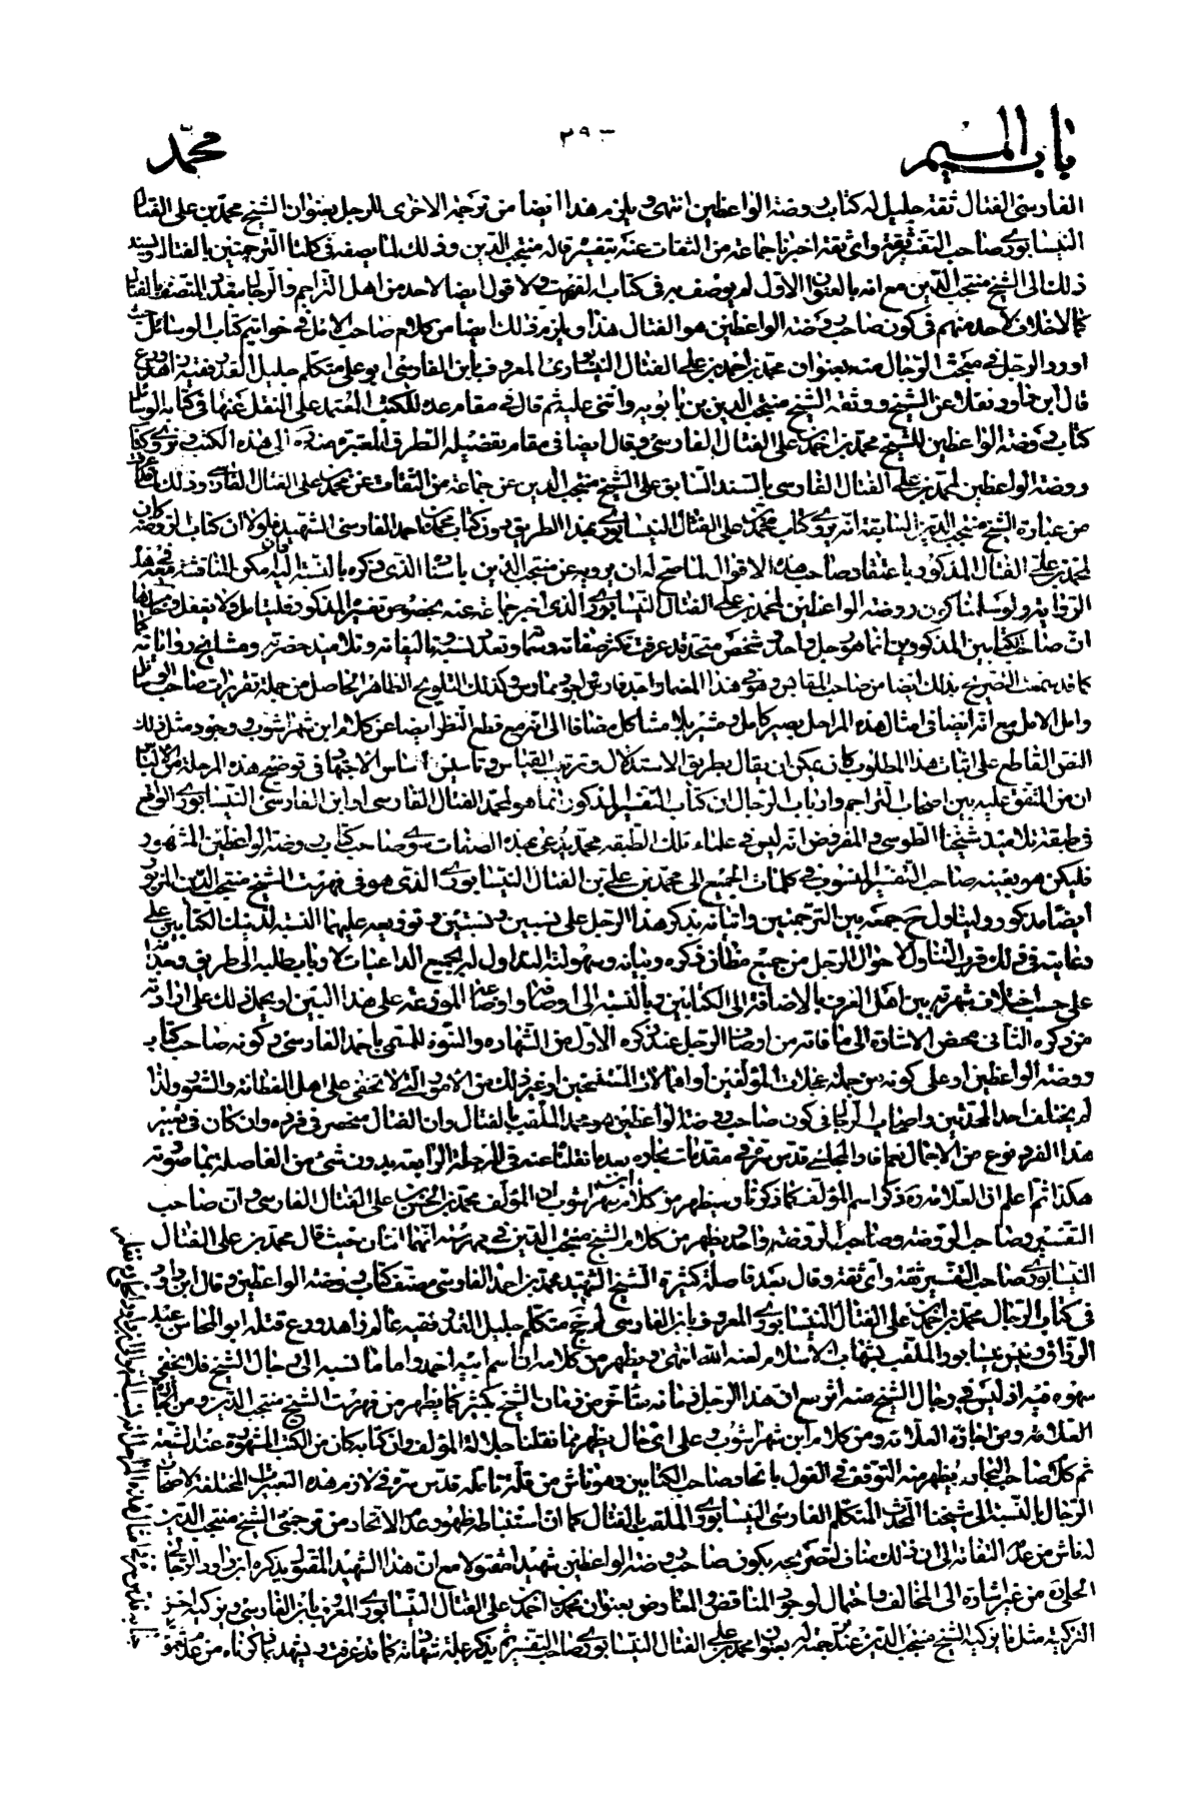 باب الميم
٢٩٠
محمّد
الفارسى الفتال ثقة جليل له كتاب روضة الواعظين انتهى ويلزم هذا ايضا من ترجمته الاخرى للرجل بعنوان الشيخ محمد بن على الفتال
النيسابورى صاحب التفسير ثقة واى ثقة اخبرنا جماعة من الثقات عنه بتفسيره قاله منتجب الدين وذلك لما يصفه فى كلتا الترجمتين بالفتال ويسند
ذلك الى الشيخ منتجب الدين مع انه بالعنوان الاول لم يوصف به فى كتاب الفهرست ولا قول ايضا لاحد من اهل التراجم والرجال
كما لا خلاف لاحد منهم فى كون صاحب روضة الواعظين هو الفتال هذا ويلزم ذلك ايضا من كلام صاحب الامل فى خواتيم كتاب الوسائل حيث
اورد الرجل فى مبحث الرجال منه بعنوان محمد بن احمد بن على الفتال النيسابورى المعروف بابن الفارسى ابو على متكلم جليل القدر فقيه زاهد ورع
قال ابن داود نقلا عن الشيخ ووثقه الشيخ منتجب الدين بن بابويه واثنى عليه ثم قال فى مقام عده للكتب المعتمد على النقل عنها فى كتابه الوسائل
كتاب روضة الواعظين للشيخ محمد بن احمد بن على الفتال الفارسى وقال ايضا فى مقام تفصيله الطرق المعتبرة منه الى هذه الكتب ونروى كتاب
روضة الواعظين لمحمد بن على الفتال الفارسى بالسند السابق على الشيخ منتجب الدين عن جماعة من الثقات عن محمد بن على الفتال الفارسى وذلك
من عبارة الشيخ منتجب الدين السابقة انه يروى كتاب محمد بن على الفتال النيسابورى بهذا الطريق دون كتاب محمد بن احمد الفارسى الشهيد فلولا ان كتاب الروضة كان
لمحمد بن على الفتال المذكور باعتقاد صاحب هذه الاقوال لما صح له ان يرويه عن منتجب الدين باسناد الذى ذكره بالنسبة اليه
ان صاحب الكتابين المذكورين انما هو رجل واحد وشخص متحد قد عرفت تكثر صفاته وسماته وتعدد نسبه وتاليفاته وتلاميذ حضرته ومشايخ رواياته
وامل الامل مع انه ايضا فى امثال هذه المراحل بصير كامل وخبير بلا مشاكل مضافا الى انه مع قطع النظر ايضا عن كلام ابن شهراشوب ووجود مثل ذلك
النص القاطع على اثبات هذا المطلوب كان يمكن ان يقال بطريق الاستدلال وترتيب القياس وتاسيس اساس الاجتهاد فى توضيح هذه المرحلة
ان من المتفق عليه بين اصحاب التراجم وارباب الرجال ان كتاب التفسير المذكور انما هو لمحمد الفتال الفارسى او ابن الفارسى النيسابورى الواقع
فى طبقة تلاميذ شيخنا الطوسى والمفروض انه ليس فى علماء تلك الطبقة محمد يدعى بهذه الصفات سوى صاحب كتاب روضة الواعظين المشهور
فليكن هو بعينه صاحب التفسير المنسوب فى كلمات الجميع الى محمد بن على بن الفتال النيسابورى الذى هو فى فهرست الشيخ منتجب الدين المزبور
ايضا مذكور وليتاول ح جمعه بين الترجمتين واتيانه بذكر هذا الرجل على نسبين ونسبتين وتوزيعه عليهما النسبة لذينك الكتابين على
رعايته فى ذلك قرب التناول لاحوال الرجل من جميع مظان ذكره وبيانه وسهولة التداول له لجميع الداعيات لارباب طلبه الى طريق وجدانه
على حسب اختلاف شهرته بين اهل العرف بالاضافة الى الكتابين وبالنسبة الى اوصافه واوضاعه الموزعة على هذا البين او يحمل ذلك على ارادته
من ذكره الثانى محض الاشارة الى ما فاته من اوصاف الرجل عند ذكره الاول من الشهادة والبنوة للمسمى باحمد الفارسى وكونه صاحب كتاب
روضة الواعظين او على كونه من جملة غفلات المؤلفين او اهمالات المستنسخين او غير ذلك من الامور التى لا تخفى على اهل الفطانة والشعور ولذا
لم يختلف احد المحدثين واصحاب الرجال فى كون صاحب روضة الواعظين هو محمد الملقب بالفتال وان الفتال منحصر فى فرده وان كان فى تعيين
هذا الفرد نوع من الاجمال نعم قال المجلسى قدس سره فى مقدمات بحاره بعد ما نقلنا عنه فى المرحلة الرابعة بدون شئ من الفاصلة بما صورته
هكذا ثم اعلم ان العلامة ره ذكر اسم المؤلف كما ذكرنا وسيظهر من كلام ابن شهراشوب ان المؤلف محمد بن الحسن بن على الفتال الفارسى وان صاحب
التفسير وصاحب الروضة واحد ويظهر من كلام الشيخ منتجب الدين فى فهرسته انهما اثنان حيث قال محمد بن على الفتال
النيسابورى صاحب التفسير ثقة واى ثقة وقال بعد فاصلة كثيرة الشيخ الشهيد محمد بن احمد الفارسى مصنف كتاب روضة الواعظين وقال ابن داود
فى كتاب الرجال محمد بن احمد بن على الفتال النيسابورى المعروف بابن الفارسى لم جخ متكلم جليل القدر فقيه عالم زاهد ورع قتله ابو المحاسن عبد
الرزاق رئيس نيسابور الملقب بشهاب الاسلام لعنه الله انتهى ويظهر من كلامه ان اسم ابيه احمد واما ما نسبه الى رجال الشيخ فلا يخفى
سهوه فيه اذ ليس فى رجال الشيخ منه اثر مع ان هذا الرجل زمانه متاخر عن زمان الشيخ بكثير كما يظهر من فهرست الشيخ منتجب الدين ومن اجازة
العلامة ومن كلام ابن شهراشوب وعلى اى حال يظهر مما نقلنا جلالة المؤلف وان كتابه كان من الكتب المشهورة عند الشيعة
ثم كلام صاحب البحار يظهر منه التوقف فى القول باتحاد صاحب الكتابين وهو ناش من قلة تامله قدس سره فى لازم هذه التعبيرات المختلفة لاصحاب
الرجال بالنسبة الى شيخنا المحدث المتكلم الفارسى النيسابورى الملقب بالفتال كما ان استنباطه ظهور عدم الاتحاد من ترجمتى الشيخ منتجب الدين
له ناش من عدم التفاته الى ان ذلك مناف لتصريحه بكون صاحب روضة الواعظين شهيدا مقتولا مع ان هذا الشهيد المقتول يذكره ابن داود الرجالى
الحلى ره من غير اشارة الى المخالف واحتمال لوجود المناقض والمعارض بعنوان محمد بن احمد بن على الفتال النيسابورى المعروف بابن الفارسى ويزكيه اخر
التزكية مثل ما يزكيه الشيخ منتجب الدين عند ترجمته له بعنوان محمد بن على الفتال النيسابورى صاحب التفسير ثم يذكر علة شهادته كما قد عرفت ويشهد بما ذكرناه من عدم